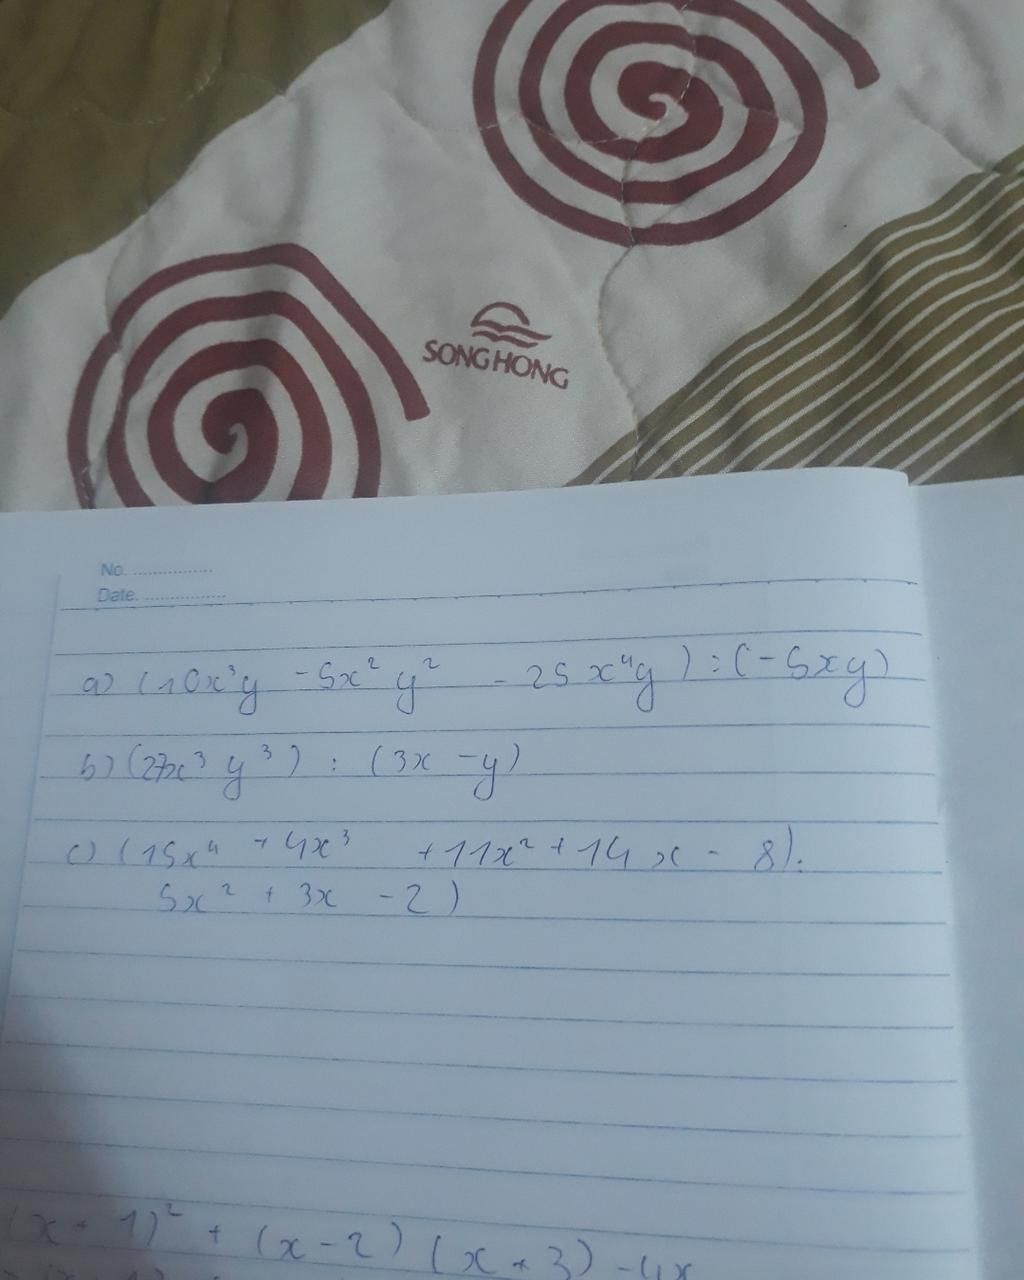 SONG HONG
No. ................
Date. ................
a) (10x³y - 5x² y² - 25 x⁴y ) : (-5xy)
b) (27x³ y³ ) : (3x - y)
c) (15x⁴ + 4x³ + 11x² + 14x - 8).
5x² + 3x - 2 )
(x + 1)² + (x - 2) (x + 3) - 4x